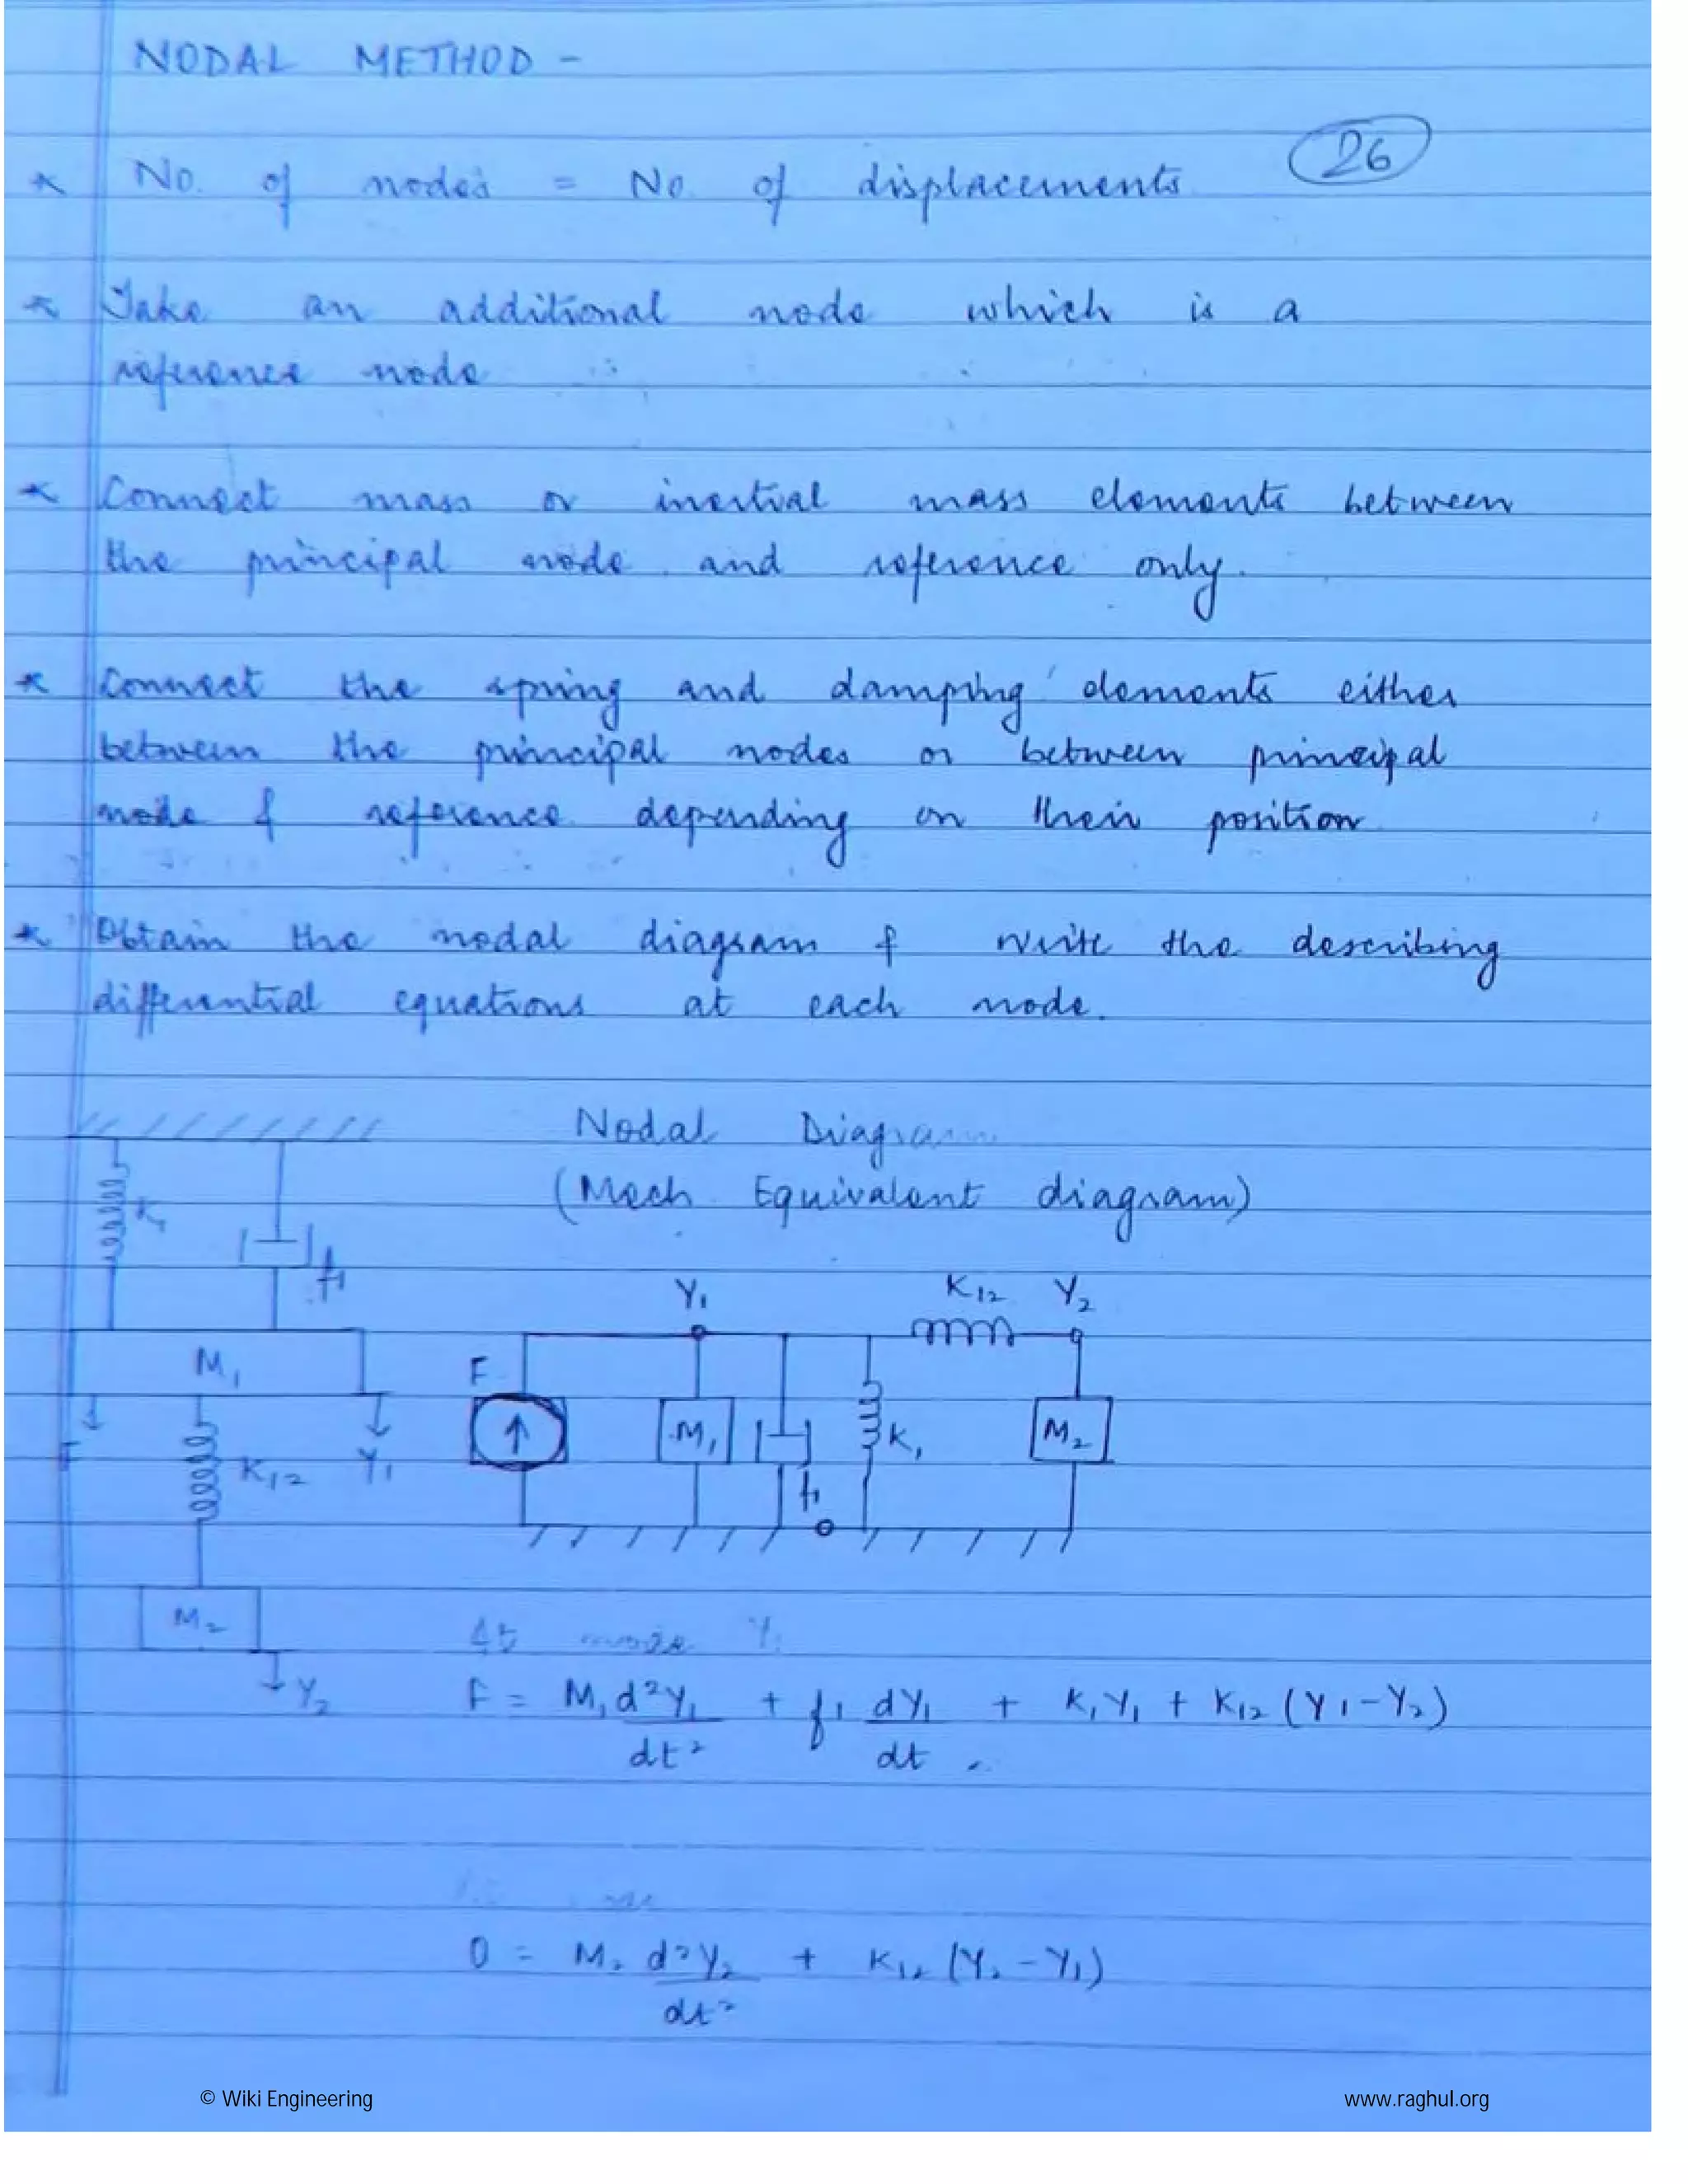 NODAL METHOD -
26
* No. of nodes = No. of displacements
* Take an additional node which is a
reference node
* Connect mass or inertial mass elements between
the principal node and reference only.
* Connect the spring and damping elements either
between the principal nodes or between principal
node & reference depending on their position
* Obtain the nodal diagram & write the describing
differential equations at each node.
Nodal Diagram
(Mech. Equivalent diagram)
K1
f1
M1
F
K12
Y1
M2
Y2
Y1
K12 Y2
F
M1
f1
K1
M2
At node Y1
F = M1 d²Y1/dt² + f1 dY1/dt + K1Y1 + K12 (Y1-Y2)
0 = M2 d²Y2/dt² + K12 (Y2-Y1)
© Wiki Engineering
www.raghul.org